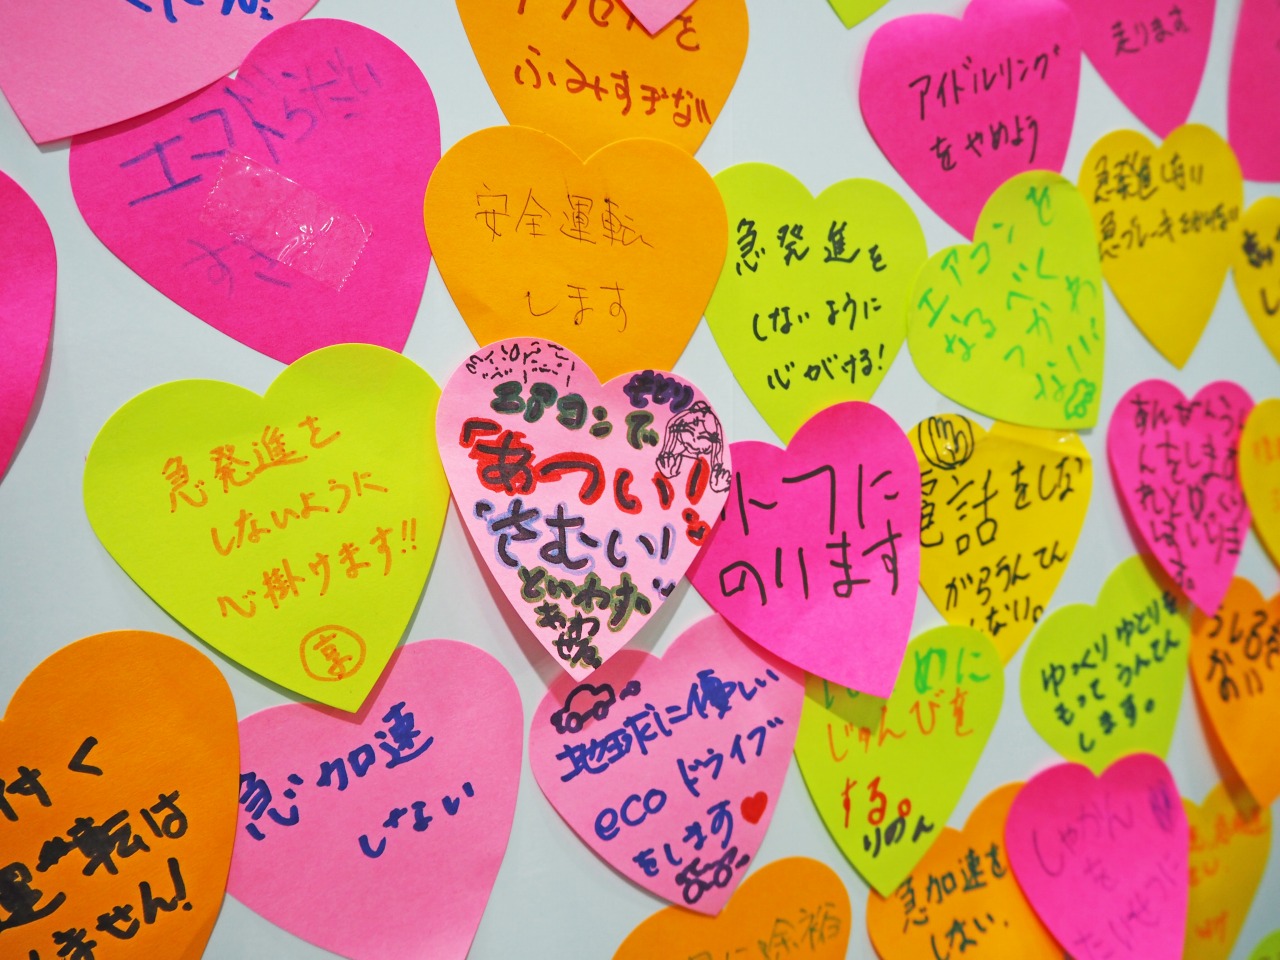 ふみすぎない
アイドルリング
をやめよう
走ります
エコドらだい
すき
安全運転
します
急発進を
しないように
心がける!
エアコンを
なるべく
つかわ
ない
急発進しない
急ブレーキ
急発進を
しないように
心掛けます!!
京
エアコンで
「あつい!」
「さむい!」
といわず
トフに
のります
電話をしな
がらうんてん
しない。
ゆっくりゆとりを
もってうんてん
します。
付く
運転は
ません!
急加速
しない
地球に優しい
ecoドライブ
をします
めに
じゅんびを
する。
りのん
急加速を
しない.
しゃかん
を
たいせつに
余裕